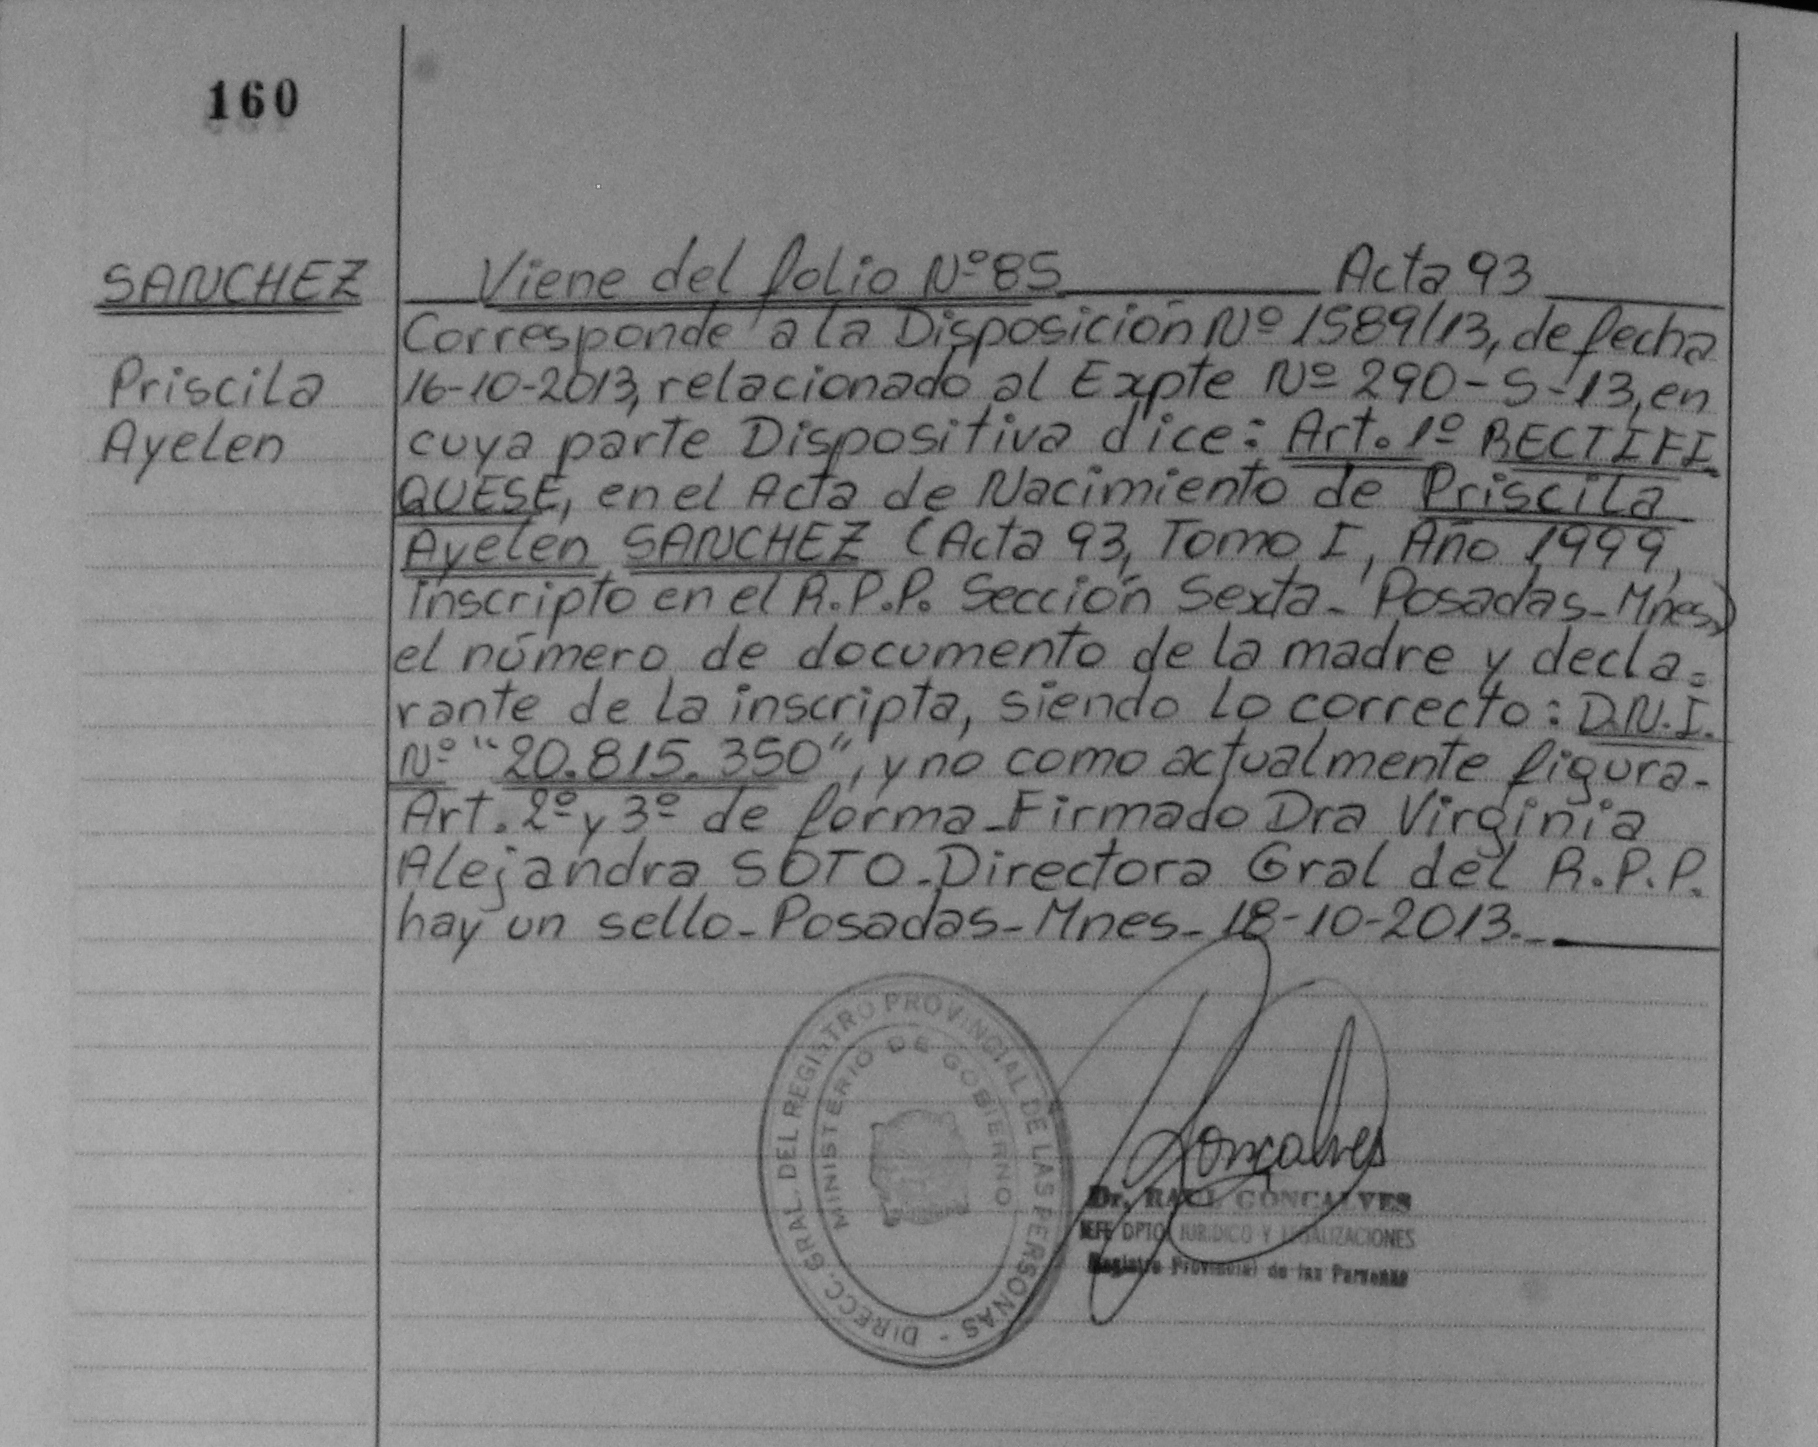 160
SANCHEZ
Priscila
Ayelen
Viene del folio Nº 85 Acta 93
Corresponde a la Disposición Nº 1589/13, de fecha
16-10-2013, relacionado al Expte Nº 290-S-13, en
cuya parte Dispositiva dice: Art. 1º RECTIFI
QUESE, en el Acta de Nacimiento de Priscila
Ayelen SANCHEZ (Acta 93, Tomo I, Año 1999,
inscripto en el R.P.P. Sección Sexta - Posadas - Mnes)
el número de documento de la madre y decla=
rante de la inscripta, siendo lo correcto: D.N.I.
Nº "20.815.350", y no como actualmente figura-
Art. 2º y 3º de forma - Firmado Dra Virginia
Alejandra SOTO - Directora Gral del R.P.P.
hay un sello - Posadas - Mnes - 18-10-2013.-
DIRECC. GRAL. DEL REGISTRO PROVINCIAL DE LAS PERSONAS -
MINISTERIO DE GOBIERNO
Gonçalves
Dr. RAUL GONCALVES
JEFE DPTO. JURIDICO Y LEGALIZACIONES
Registro Provincial de las Personas